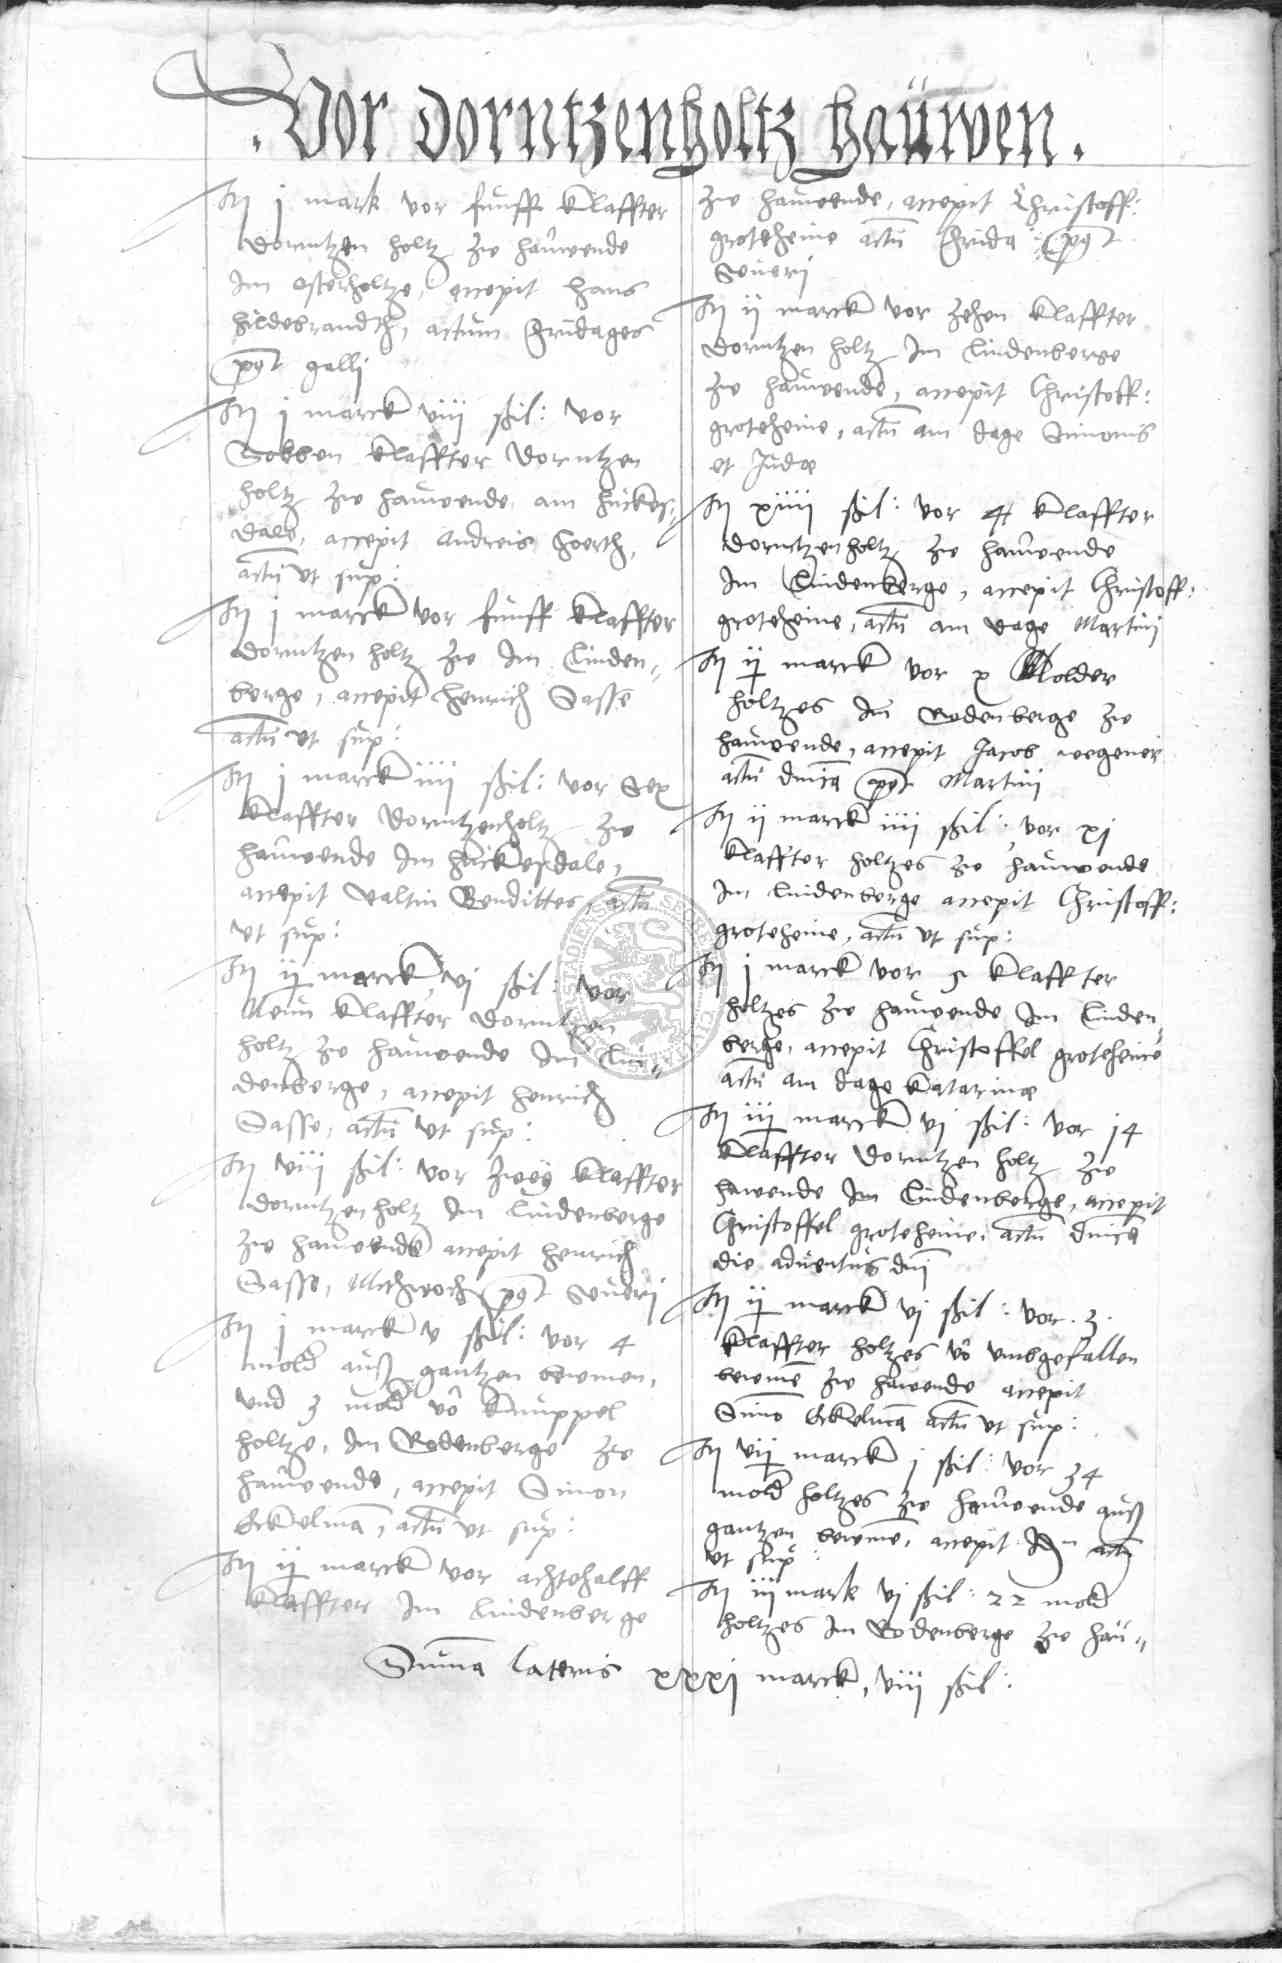 Vor dorntzenholtz haüwen.
It j mark vor funff klaffter
dorntzen holtz zu hauwende
Im osterholtze, accepit hans
hildebrandth, actum fridages
post galli
It j marck viij ßil: vor
Sobben klaffter dorntzen
holtz zu hauwende am huckes-
dale, accepit Andreis
actu ut sup:
It j marck vor funff klaffter
dorntzen holtz zu Im Linden-
berge, accepit henrich Sasse
actu ut sup:
It j marck iiij ßil: vor Sex
klaffter dorntzenholtz zu
hauwende Im huckesdale,
accepit Valtin Bendittes, actu
ut sup:
It ij marck vj ßil: vor
Neun klaffter dorntzen
holtz zu hauwende Im Lin-
denberge, accepit henrich
Sasse, actu ut sup:
It viij ßil: vor zweÿ klaffter
dorntzenholtz Im Lindenberge
zu hauwende accepit henrich
Sasse, Mithwoch post Severi
It j marck v ßil: vor 4
mold auß gantzen bewmen,
und 3 mold vo knuppel
holtze, Im Rodenberge zu
hauwende, accepit Simon
Eckelma, actu ut sup:
It ij marck vor achtehalff
klaffter Im Lindenberge
zu hauwende, accepit Christoff:
groteheine actu frida: post
Severi
It ij marck vor zehen klaffter
dorntzen holtz Im Lindenberge
zu hauwende, accepit Christoff:
groteheine, actu am dage Simonis
et Judæ
It xiiij ßil: vor 4 klaffter
dorntzenholtz zu hauwende
Im Lindenberge, accepit Christoff:
groteheine, actu am dage Martini
It ij marck vor x Molder
holtzes Im Rodenberge zu
hauwende, accepit Jacob wegener
actu dnica post Martini
It ij marck iiij ßil: vor xj
klaffter holtzes zu hauwende
Im Lindenberge accepit Christoff:
groteheine, actu ut sup:
It j marck vor 5 klaffter
holtzes zu hauwende Im Linden-
berge, accepit Christoffel groteheine
actu am dage Katarinæ
It iij marck vj ßil: vor 14
klaffter dorntzen holtz zu
hawende Im Lindenberge, accepit
Christoffel groteheine, actu dnica
die adventus dni
It ij marck vj ßil: vor .3.
klaffter holtzes vo umbgefallen
bewme zu hawende accepit
Simo Eckelma actu ut sup:
It vij marck j ßil: vor 34
mold holtzes zu hauwende auß
gantzen bewme, accepit actu
ut sup:
It iij mark vj ßil: 22 mold
holtzes Im Rodenberge zu hau-
Suma lateris xxxj marck, viij ßil: